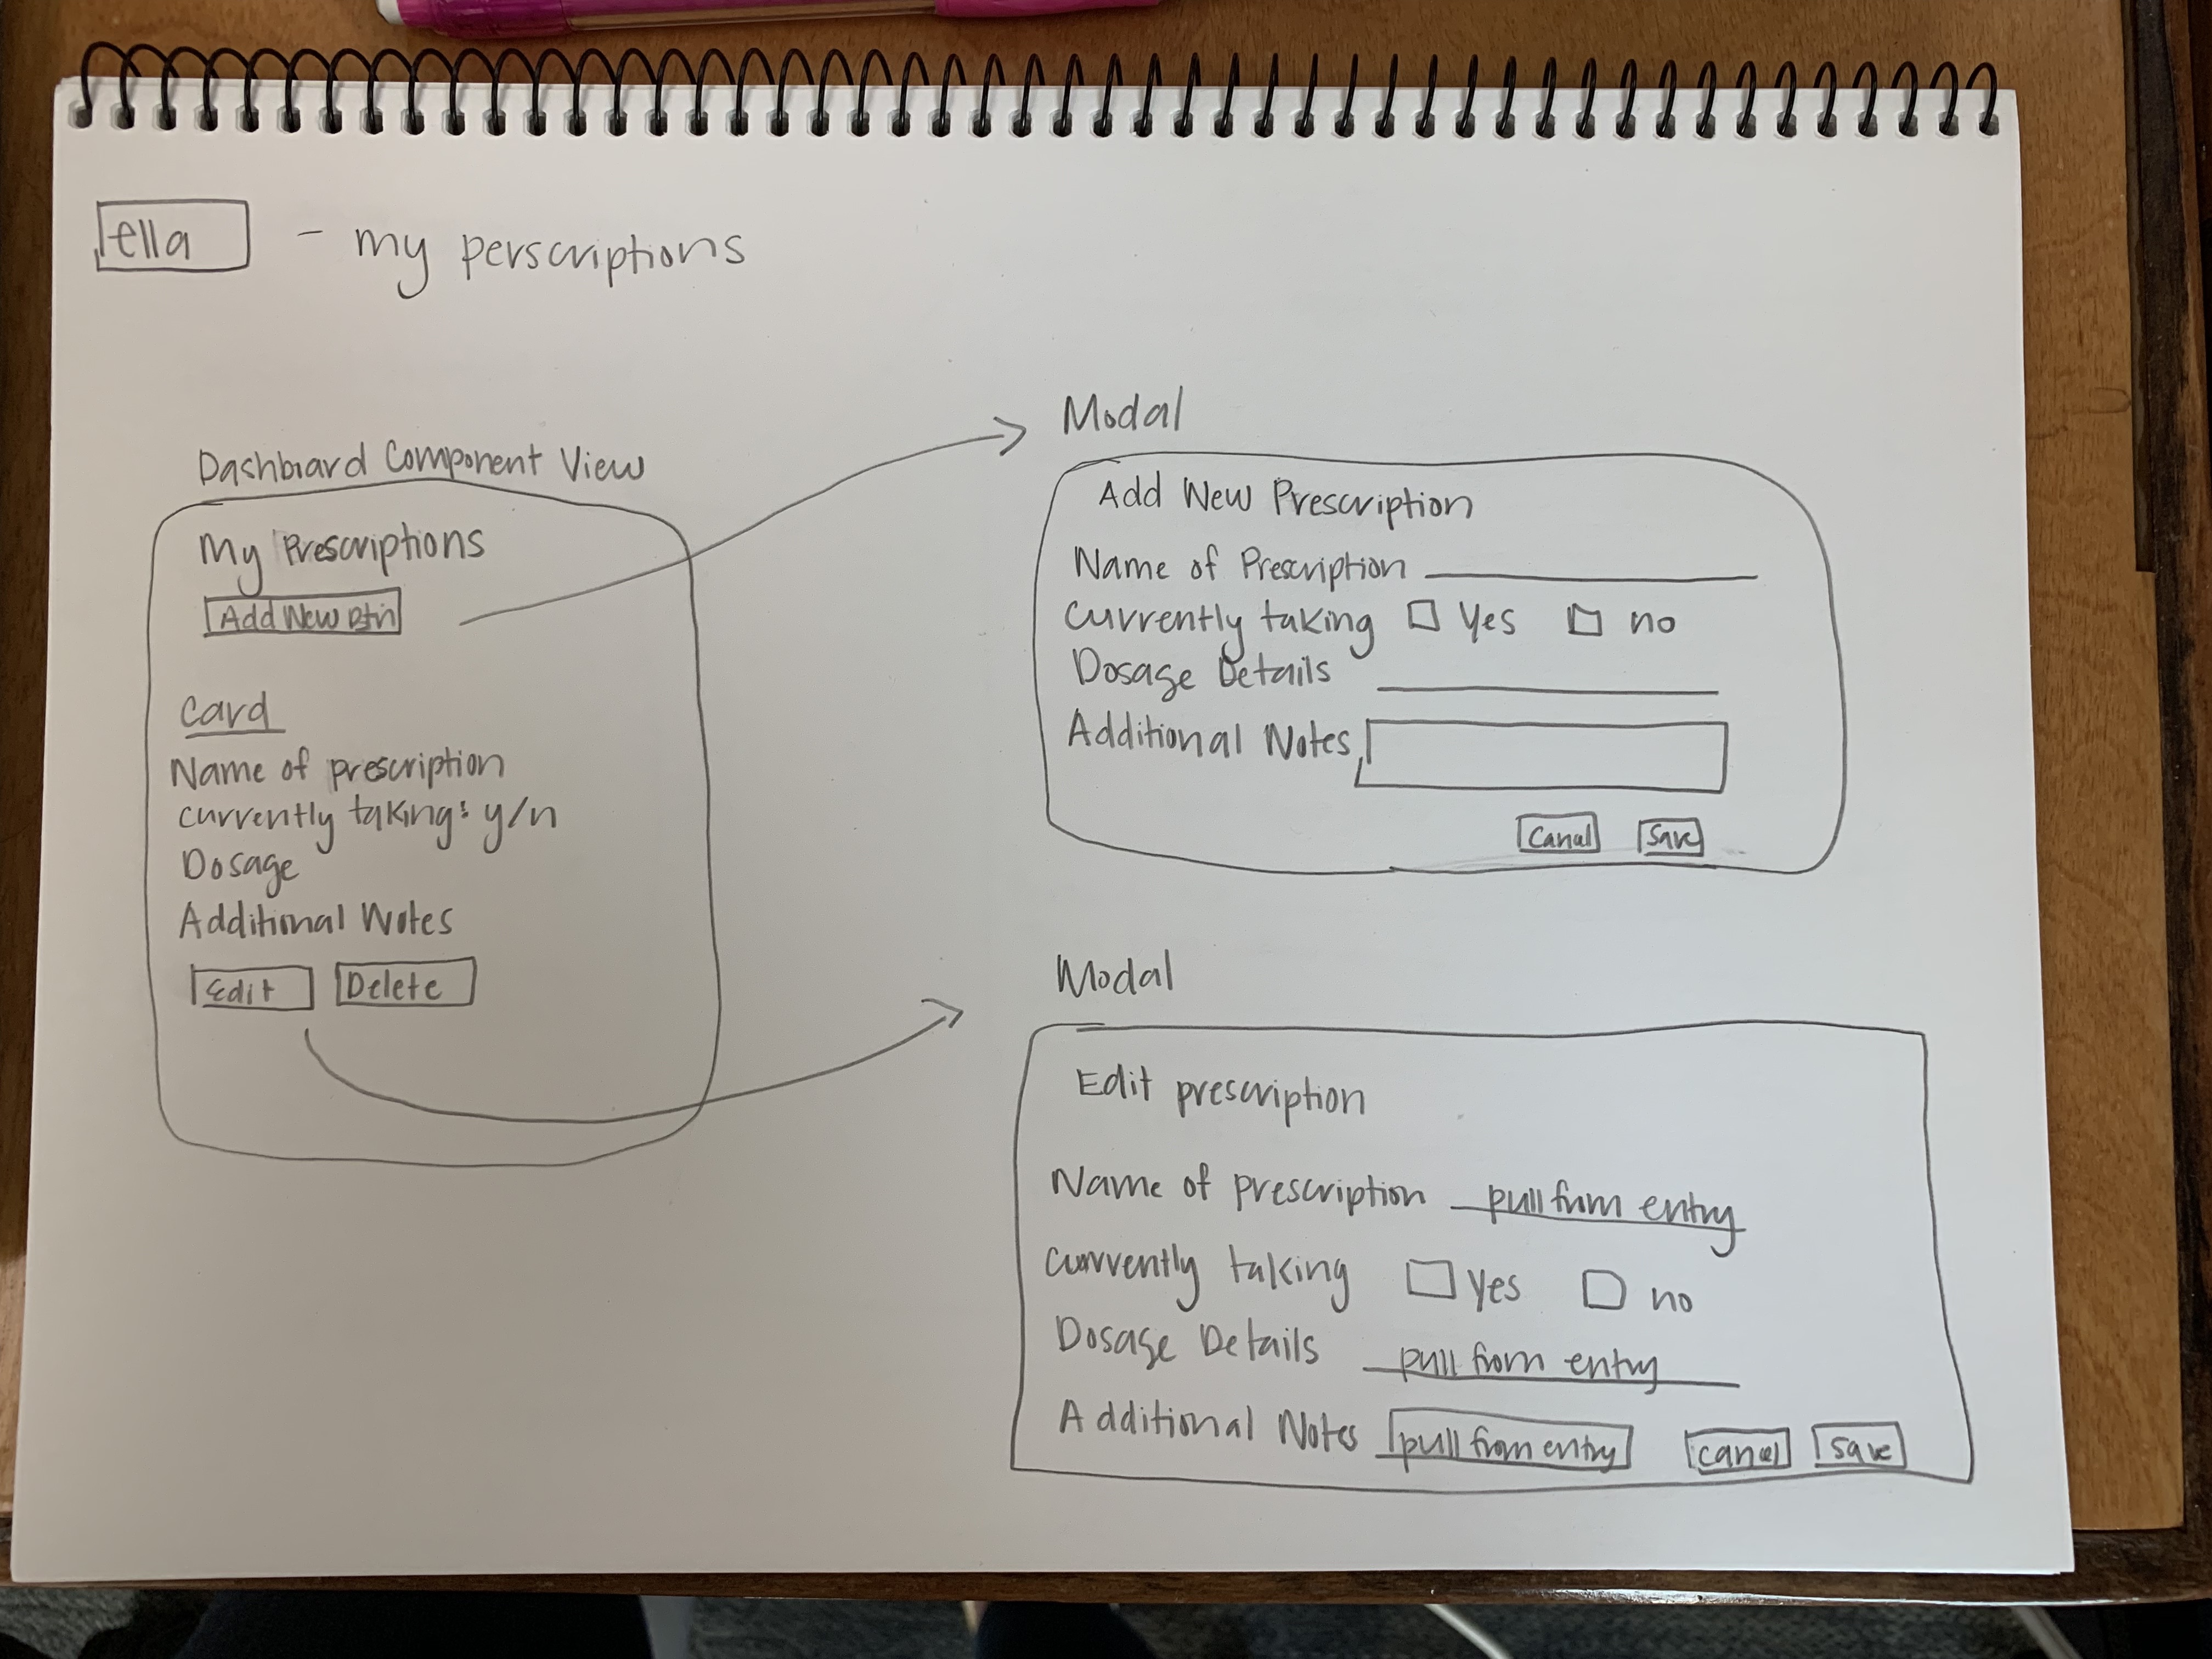 ella - my perscriptions
Dashboard Component View
My Prescriptions
Add New Btn
Card
Name of prescription
currently taking: y/n
Dosage
Additional Notes
Edit Delete
Modal
Add New Prescription
Name of Prescription
Currently taking Yes no
Dosage Details
Additional Notes
Cancel Save
Modal
Edit prescription
Name of prescription pull from entry
Currently taking Yes no
Dosage Details pull from entry
Additional Notes pull from entry cancel save